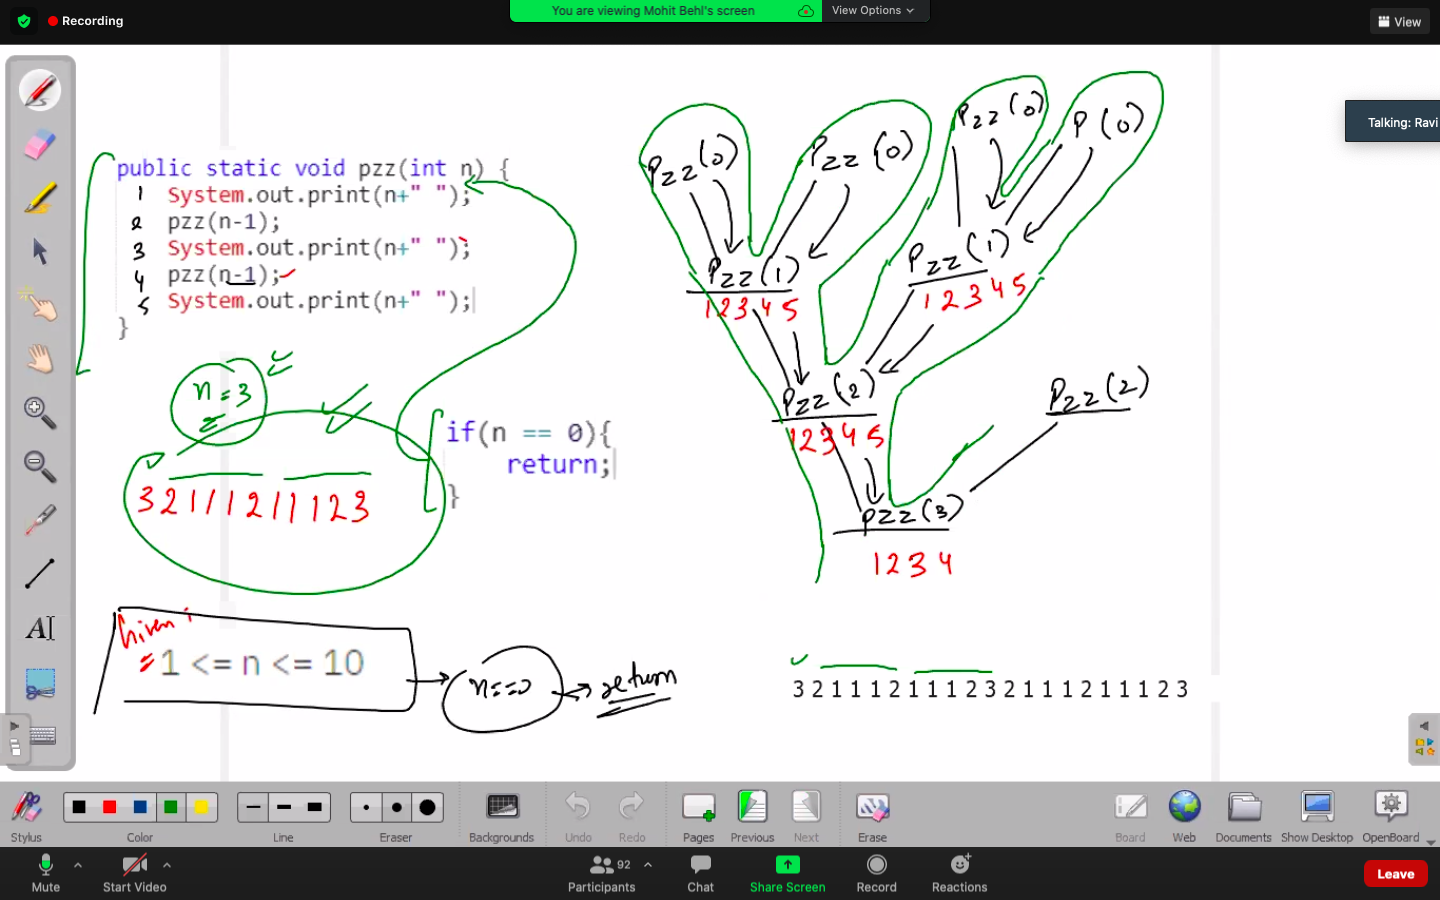 Recording
You are viewing Mohit Behl's screen
View Options
View
Talking: Ravi
public static void pzz(int n) {
1 System.out.print(n+" ");
2 pzz(n-1);
3 System.out.print(n+" ");
4 pzz(n-1);
5 System.out.print(n+" ");
}
n=3
if(n == 0){
return;
}
3 2 1 1 1 2 1 1 1 2 3
Given:
1 <= n <= 10
n==0
return
Pzz(0)
Pzz(0)
Pzz(0)
P(0)
Pzz(1)
1 2 3 4 5
Pzz(1)
1 2 3 4 5
Pzz(2)
1 2 3 4 5
Pzz(2)
Pzz(3)
1 2 3 4
3 2 1 1 1 2 1 1 1 2 3 2 1 1 1 2 1 1 1 2 3
Stylus
Color
Line
Eraser
Backgrounds
Undo
Redo
Pages
Previous
Next
Erase
Board
Web
Documents
Show Desktop
OpenBoard
Mute
Start Video
92
Participants
Chat
Share Screen
Record
Reactions
Leave